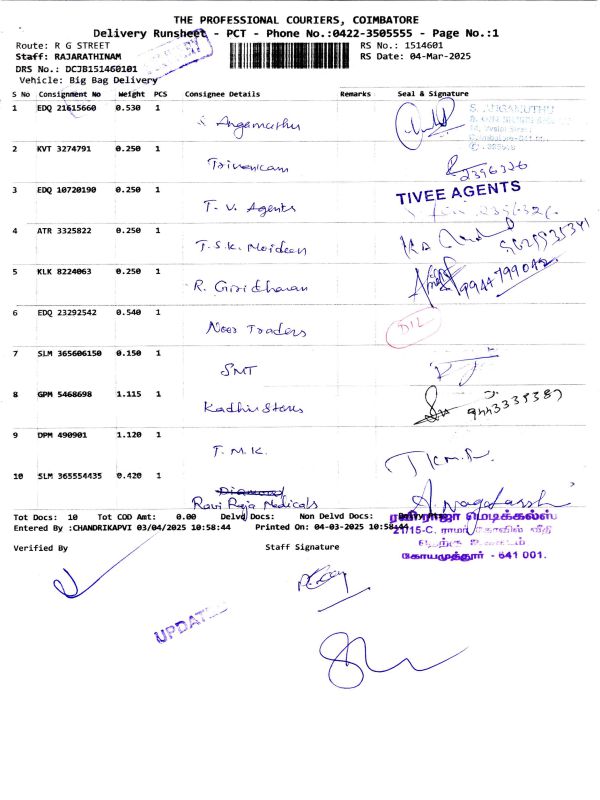 THE PROFESSIONAL COURIERS, COIMBATORE
Delivery Runsheet - PCT - Phone No.:0422-3505555 - Page No.:1
Route: R G STREET RS No.: 1514601
Staff: RAJARATHINAM RS Date: 04-Mar-2025
DRS No.: DCJB151460101
Vehicle: Big Bag Delivery
S No Consignment No Weight PCS Consignee Details Remarks Seal & Signature
1 EDQ 21615660 0.530 1 S. Angamuthu S. ANGAMUTHU
2 KVT 3274791 0.250 1 Trivenicam 2396326
3 EDQ 10720190 0.250 1 T. V. Agents TIVEE AGENTS
4 ATR 3325822 0.250 1 T.S.K. Moideen
5 KLK 8224063 0.250 1 R. Giridharan 9944799042
6 EDQ 23292542 0.540 1 Noor Traders D/L
7 SLM 365606150 0.150 1 SMT
8 GPM 5468698 1.115 1 Kadhir Stores 9443335387
9 DPM 490901 1.120 1 T.M.K.
10 SLM 365554435 0.420 1 Diamond
Ravi Raja Medicals
Tot Docs: 10 Tot COD Amt: 0.00 Delvd Docs: Non Delvd Docs:
Entered By :CHANDRIKAPVI 03/04/2025 10:58:44 Printed On: 04-03-2025 10:58:44
ரவிராஜா மெடிக்கல்ஸ்
21/15-C, ராமர் கோவில் வீதி
கோயமுத்தூர் - 641 001.
Verified By Staff Signature
UPDATED